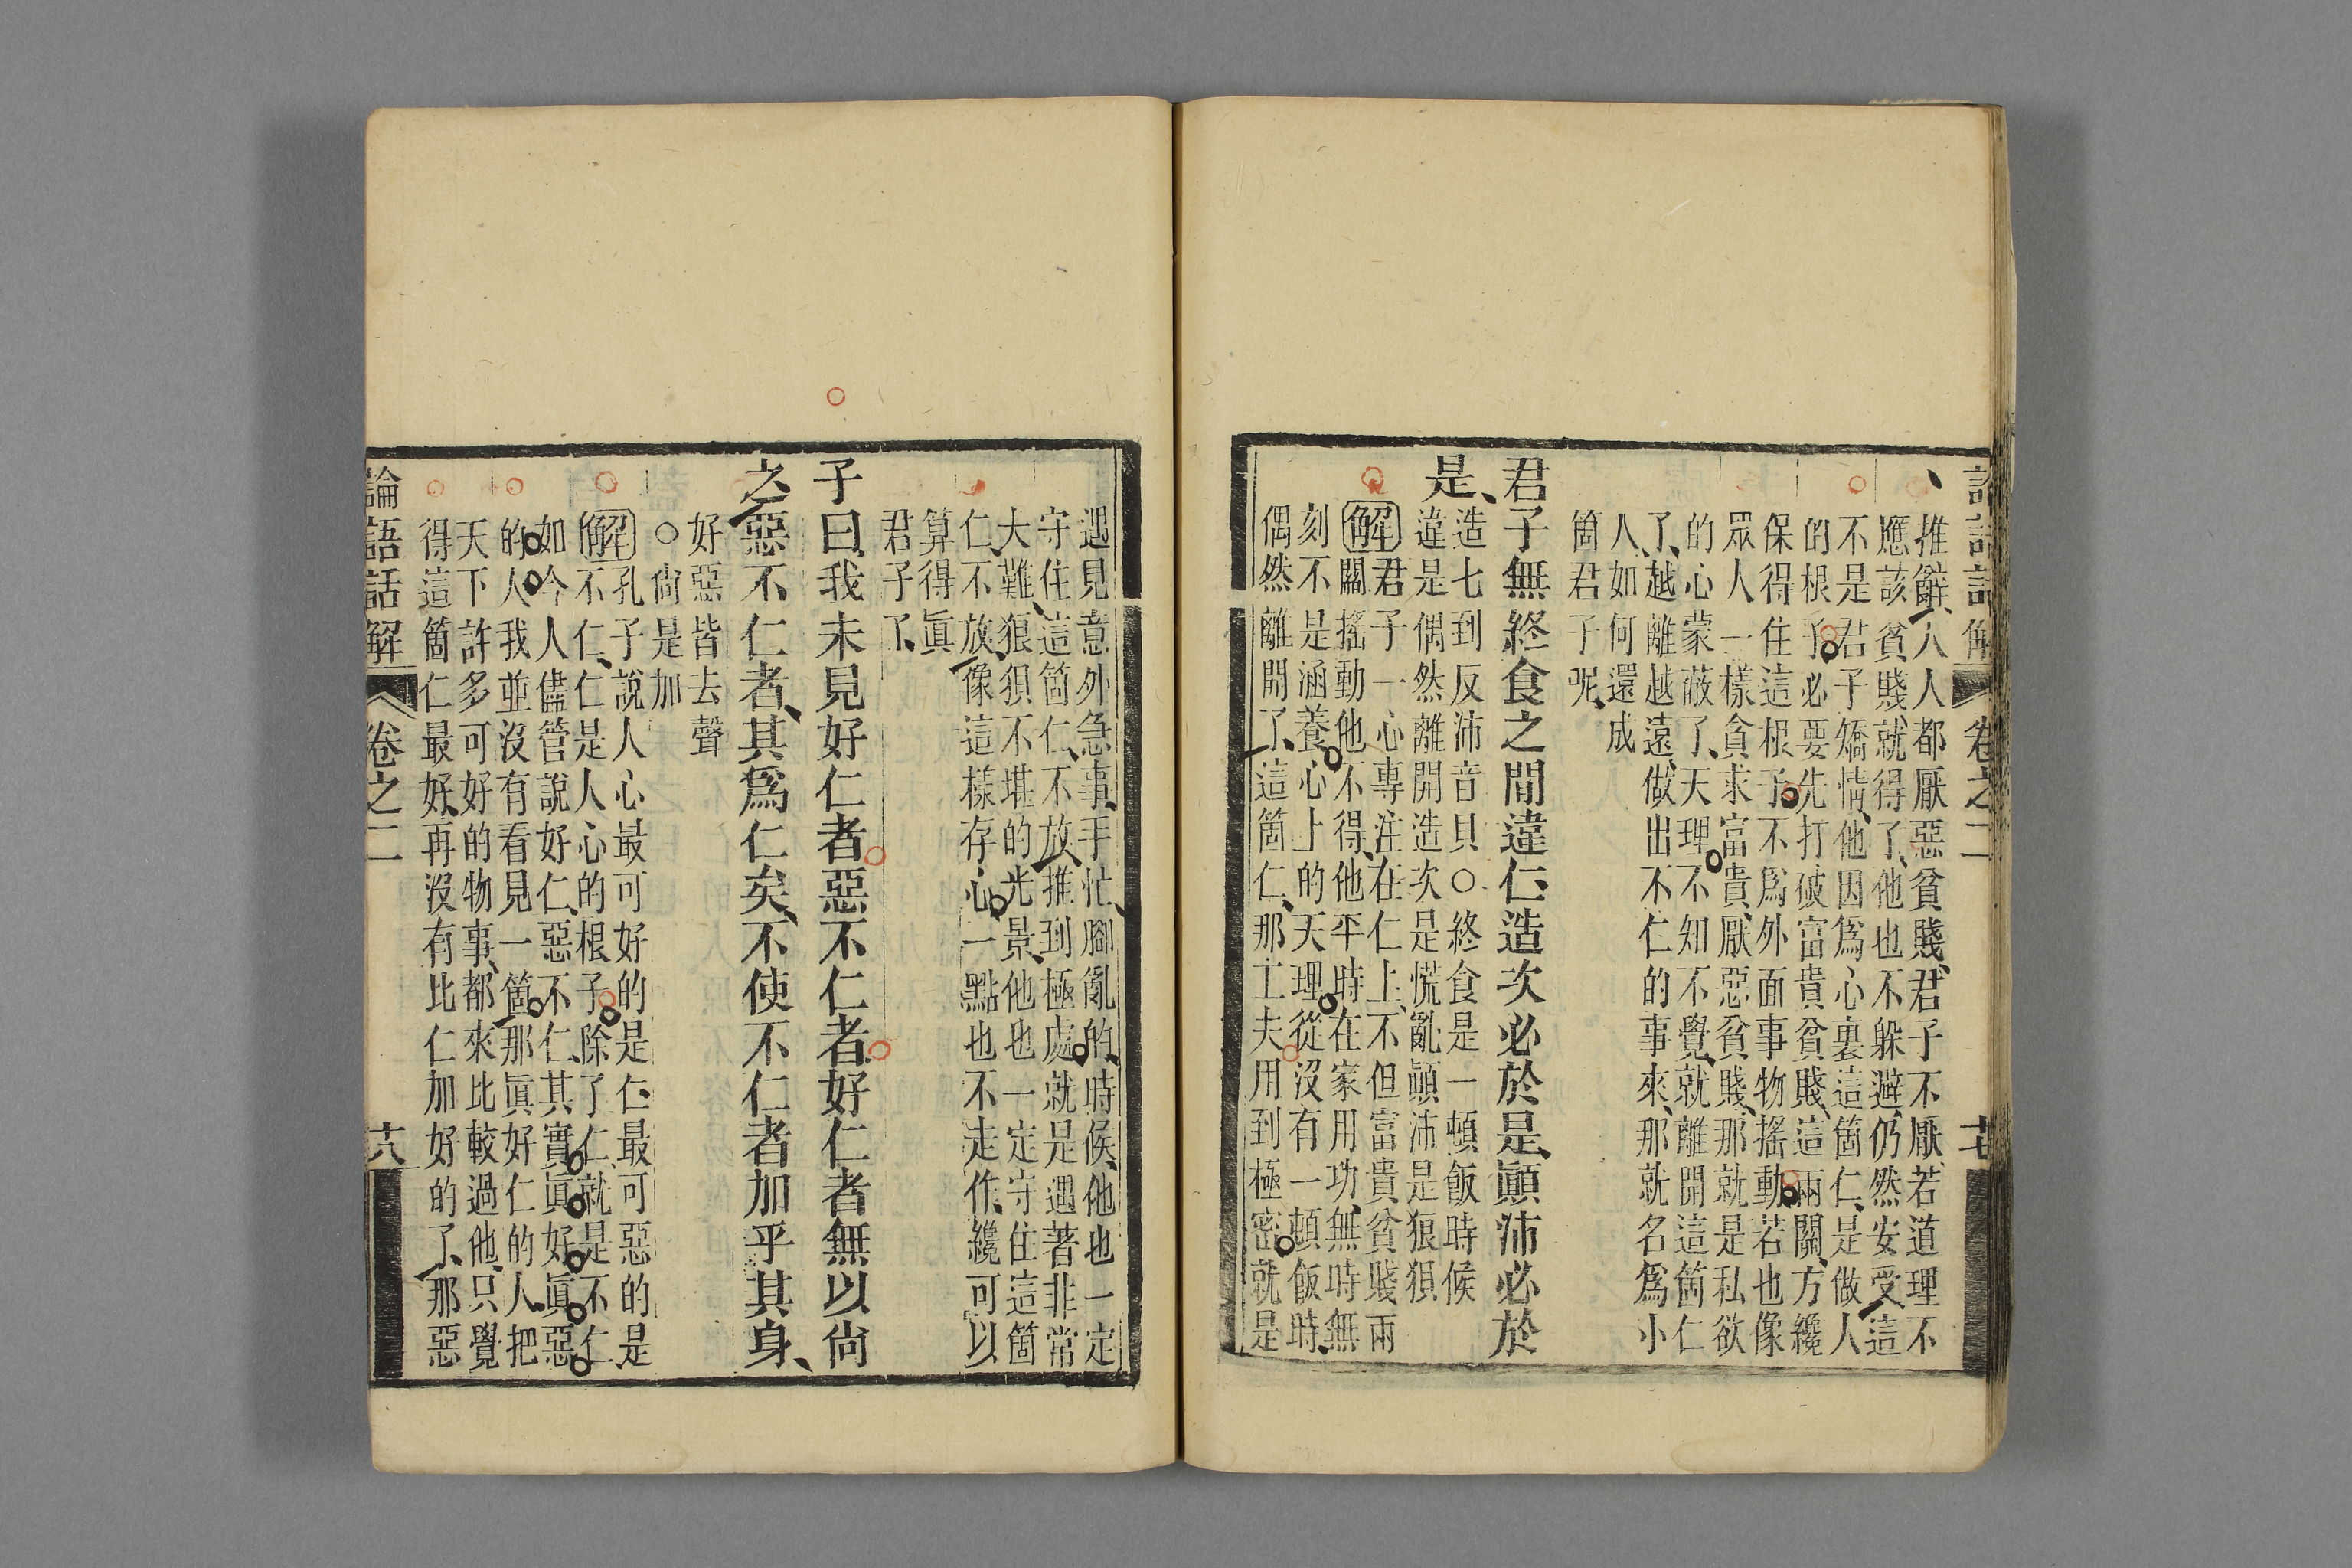 卷之二
十七
推辭人人都厭惡貧賤君子不厭若道理不
應該貧賤就得了他也不躲避仍然安受這
不是君子矯情他因為心裏這箇仁是做人
的根子必要先打破富貴貧賤這兩關方纔
保得住這根子不為外面事物搖動若也像
眾人一樣貪求富貴厭惡貧賤那就是私欲
的心蒙蔽了天理不知不覺就離開這箇仁
了越離越遠做出不仁的事來那就名為小
人如何還成
箇君子呢
君子無終食之間違仁造次必於是顚沛必於
是
造七到反沛音貝○終食是一頓飯時候
違是偶然離開造次是慌亂顚沛是狼狽
解君子一心專注在仁上不但富貴貧賤兩
關搖動他不得他平時在家用功無時無
刻不是涵養心上的天理從沒有一頓飯時
偶然離開了這箇仁那工夫用到極密就是
遇見意外急事手忙腳亂的時候他也一定
守住這箇仁不放推到極處就是遇著非常
大難狼狽不堪的光景他也一定守住這箇
仁不放像這樣存心一點也不走作纔可以
算得眞
君子了
子曰我未見好仁者惡不仁者好仁者無以尙
之惡不仁者其爲仁矣不使不仁者加乎其身
好惡皆去聲
○尙是加
解孔子說人心最可好的是仁最可惡的是
不仁仁是人心的根子除了仁就是不仁
如今人儘管說好仁惡不仁其實眞好眞惡
的人我並沒有看見一箇那眞好仁的人把
天下許多可好的物事都來比較過他只覺
得這箇仁最好再沒有比仁加好的了那惡
論語話解
卷之二
十八